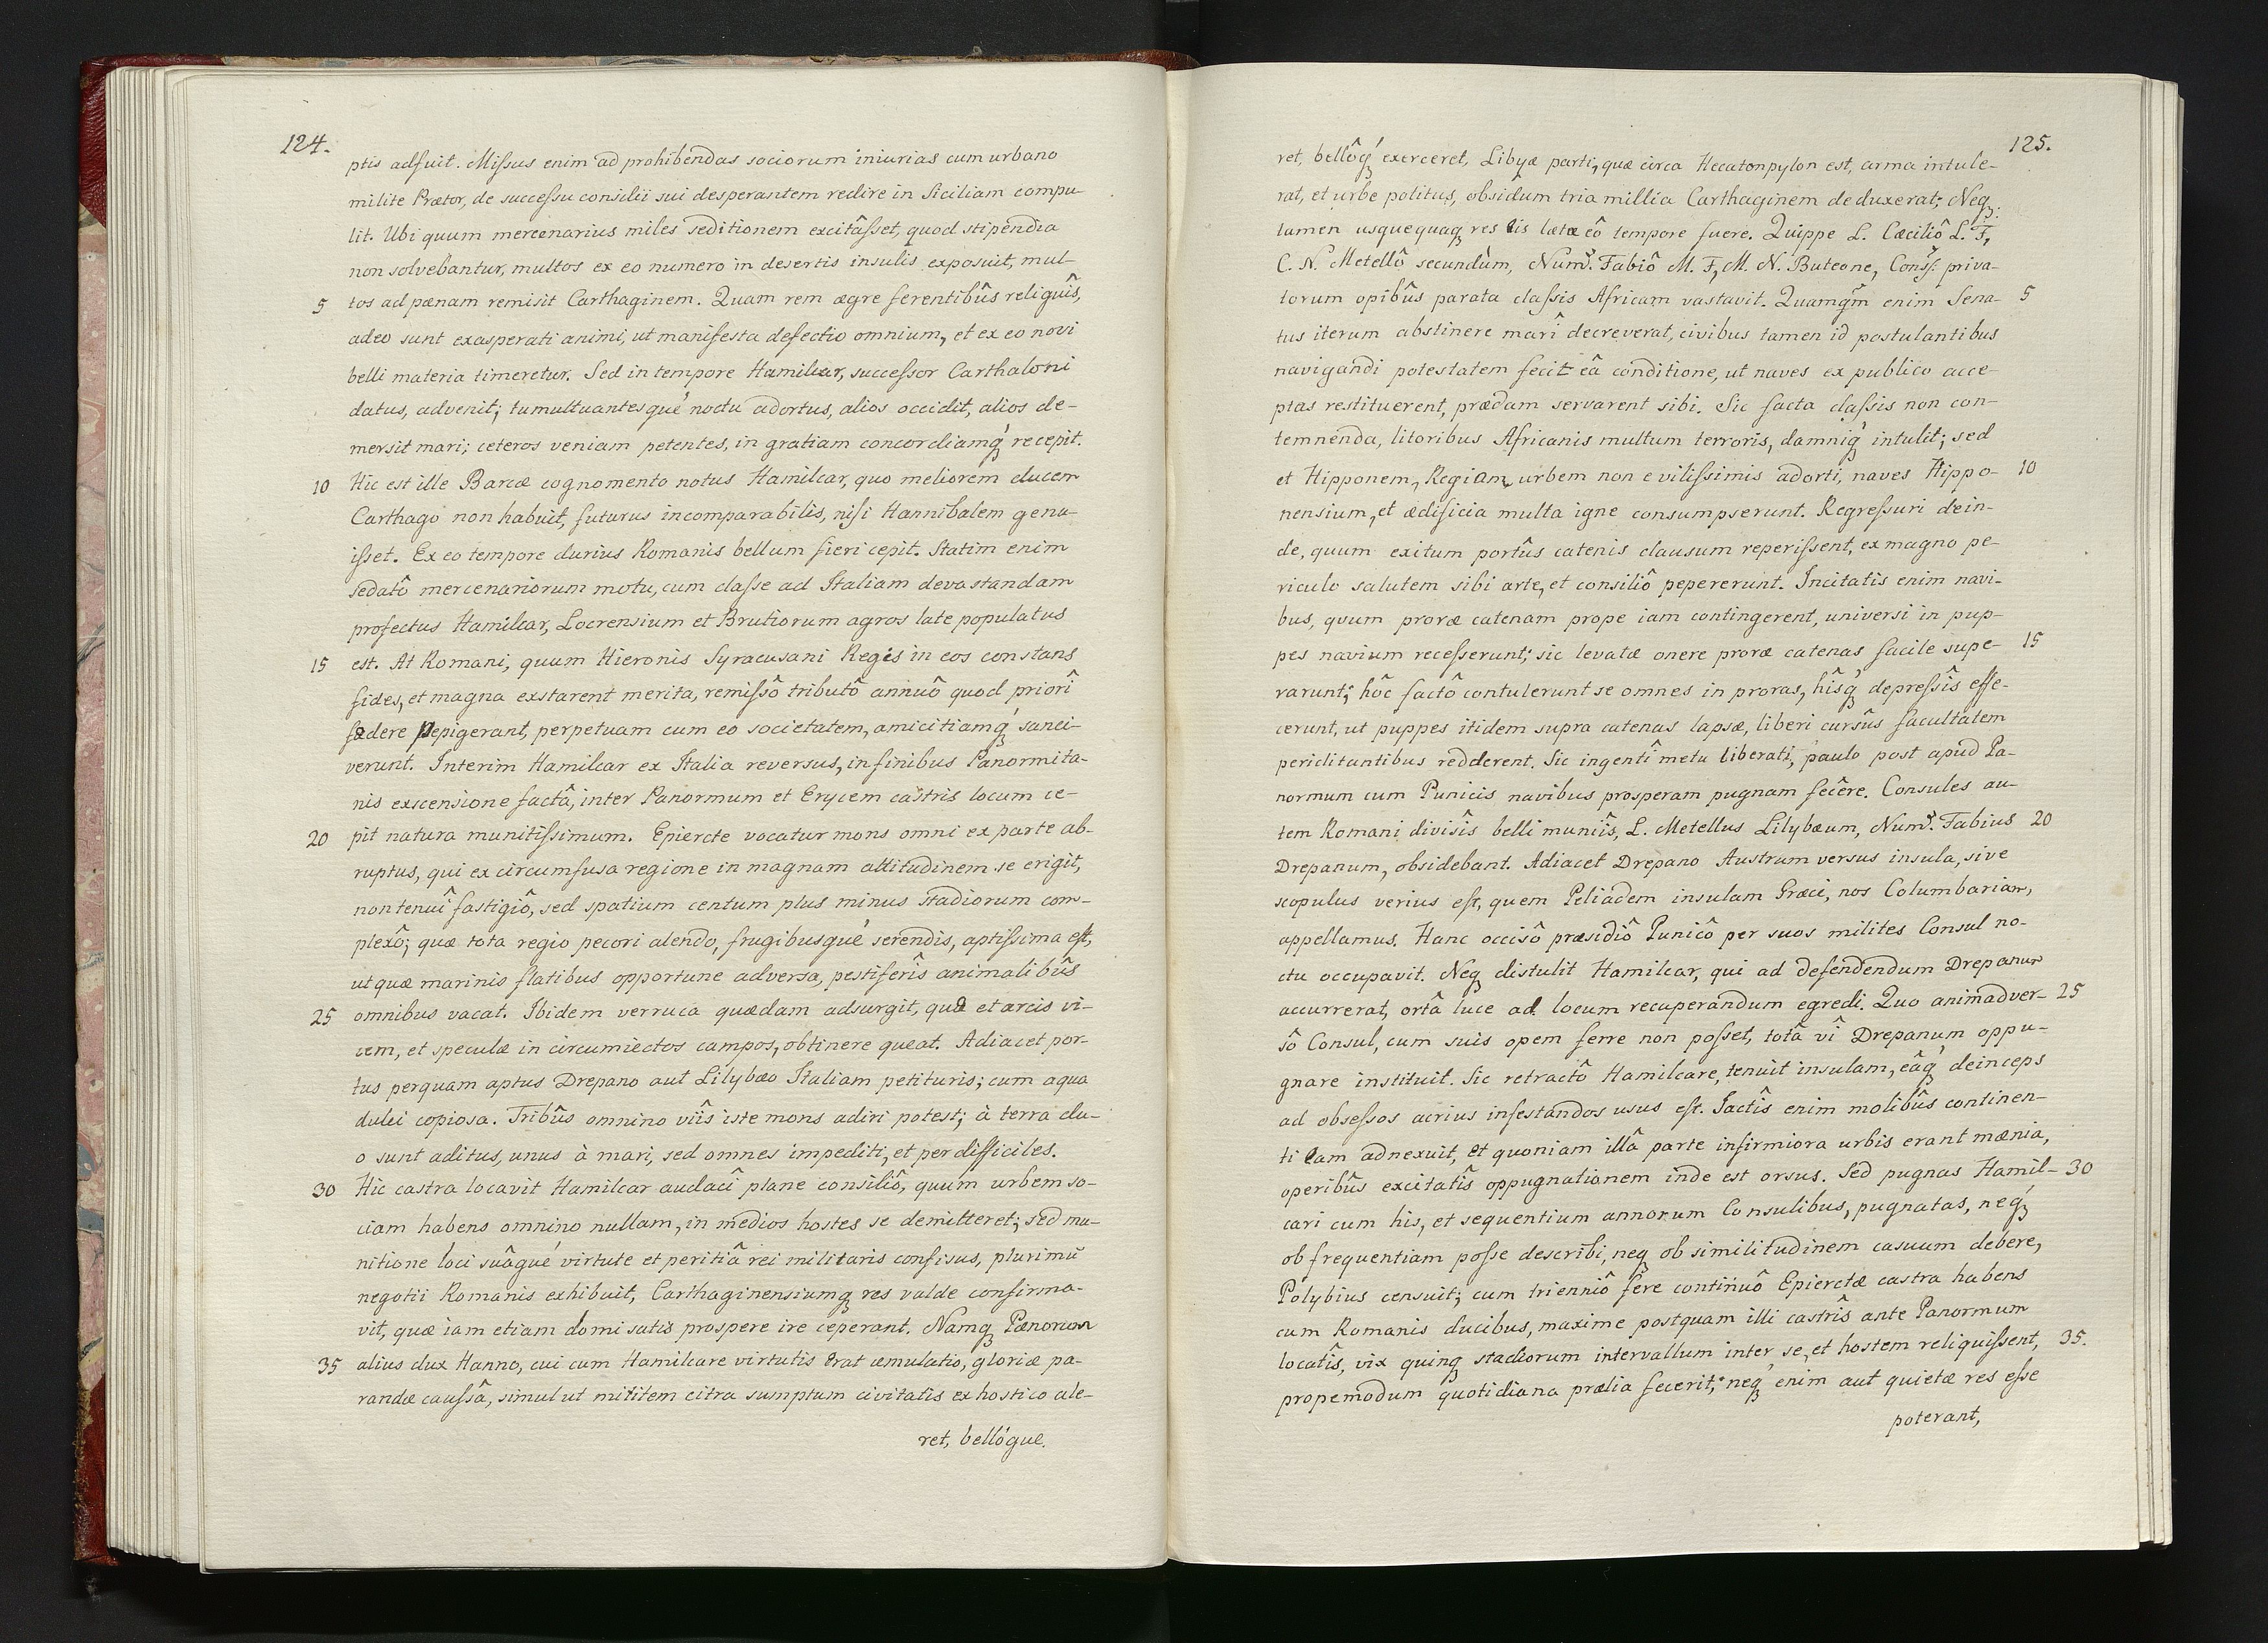 124.
ptis adfuit. Missus enim ad prohibendas sociorum iniurias cum urbano
milite Prætor, de successu consilii sui desperantem redire in Siciliam compu-
lit. Ubi quum mercenarius miles seditionem excitâsset, quod stipendia
non solvebantur, multos ex eo numero in desertis insulis exposuit, mul-
5 tos ad pænam remisit Carthaginem. Quam rem ægre ferentibûs reliquîs,
adeo sunt exasperati animi, ut manifesta defectio omnium, et ex eo novi
belli materia timeretur. Sed in tempore Hamilcar, successor Carthaloni
datus, advenit; tumultuantesqué noctu adortus, alios occidit, alios de-
mersit mari; ceteros veniam petentes, in gratiam concordiamq́ȝ recepit.
10 Hic est ille Barcæ cognomento notus Hamilcar, quo meliorem ducem
Carthago non habuit, futurus incomparabilis, nisi Hannibalem genu-
isset. Ex eo tempore durius Romanis bellum fieri cepit. Statim enim
sedatô mercenariorum motu, cum classe ad Italiam devastandam
profectus Hamilcar, Locrensium et Brutiorum agros late populatus
15 est. At Romani, quum Hieronis Syracusani Regis in eos constans
fides, et magna exstarent merita, remissô tributô annuô quod priorî
fædere pepigerant, perpetuam cum eo societatem, amicitiamq́ȝ sanci-
verunt. Interim Hamilcar ex Italia reversus, in finibus Panormita-
nis exscensione factâ, inter Panormum et Erycem castris locum ce-
20 pit natura munitissimum. Epiercte vocatur mons omni ex parte ab-
ruptus, qui ex circumfusa regione in magnam altitudinem se erigit,
non tenuî fastigiô, sed spatium centum plus minus stadiorum com-
plexô; quæ tota regio pecori alendo, frugibusqué serendis, aptissima est,
ut quæ marinis flatibus opportune adversa, pestiferîs animalibûs
25 omnibus vacat. Ibidem verruca quædam adsurgit, quæ et arcis vi-
cem, et speculæ in circumiectos campos, obtinere queat. Adiacet por-
tus perquam aptus Drepano aut Lilybæo Italiam petituris; cum aqua
dulci copiosa. Tribûs omnino viîs iste mons adiri potest; à terra du-
o sunt aditus, unus à mari, sed omnes impediti, et per difficiles.
30 Hic castra locavit Hamilcar audacî plane consiliô, quum urbem so-
ciam habens omnino nullam, in medios hostes se demitteret; sed mu-
nitione loci suâqué virtute et peritiâ rei militaris confisus, plurimū
negotii Romanis exhibuit, Carthaginensiumqȝ res valde confirma-
vit, quæ iam etiam domi satis prospere ire ceperant. Namqȝ Pænorum
35 alius dux Hanno, cui cum Hamilcare virtutis erat æmulatio, gloriæ pa-
randæ caussâ, simul ut militem citra sumptum civitatis ex hostico ale-
ret, bellóque.
125.
ret, bellôq́ȝ exerceret, Libyæ parti, quæ circa Hecatonpylon est, arma intule-
rat, et urbe politus, obsidum tria millia Carthaginem deduxerat; Neqȝ
tamen usquequaqȝ res iis lætæ eô tempore fuere. Quippe L. Cæciliô L. F,
C. N. Metellô secundùm, Numˢ. Fabiô M. F, M. N. Buteone, Conss: priva-
torum opibûs parata classis Africam vastavit. Quamqm̃ enim Sena- 5
tus iterum abstinere marî decreverat, civibus tamen id postulantibus
navigandi potestatem fecit eâ conditione, ut naves ex publico acce-
ptas restituerent, prædam servarent sibi. Sic facta classis non con-
temnenda, litoribus Africanis multum terroris, damniq́ȝ intulit; sed
et Hipponem, Regiam, urbem non e vilissimis adorti, naves Hippo- 10
nensium, et ædificia multa igne consumpserunt. Regressuri dein-
de, quum exitum portûs catenis clausum reperissent, ex magno pe-
riculo salutem sibi arte, et consiliô pepererunt. Incitatis enim navi-
bus, quum proræ catenam prope iam contingerent, universi in pup-
pes navium recesserunt; sic levatæ onere proræ catenas facile supe- 15
rarunt; hôc factô contulerunt se omnes in proras, hîsq́ȝ depressîs effe-
cerunt, ut puppes itidem supra catenas lapsæ, liberi cursûs facultatem
periclitantibus redderent. Sic ingentî metu liberati, paulo post apud Pa-
normum cum Punicis navibus prosperam pugnam fecêre. Consules au-
tem Romani divisîs belli muniîs, L. Metellus Lilybæum, Numˢ. Fabius 20
Drepanum, obsidebant. Adiacet Drepano Austrum versus insula, sive
scopulus verius est, quem Peliadem insulam Græci, nos Columbariam,
appellamus. Hanc occisô præsidiô Punicô per suos milites Consul no-
ctu occupavit. Neqȝ distulit Hamilcar, qui ad defendendum Drepanum
accurrerat, ortâ luce ad locum recuperandum egredi. Quo animadver- 25
sô Consul, cum suis opem ferre non posset, totâ vî Drepanum oppu-
gnare instituit. Sic retractô Hamilcare, tenuit insulam, eâq́ȝ deinceps
ad obsessos acrius infestandos usus est. Jactîs enim molibûs continen-
ti eam adnexuit, et quoniam illâ parte infirmiora urbis erant mænia,
operibûs excitatîs oppugnationem inde est orsus. Sed pugnas Hamil- 30
cari cum his, et sequentium annorum Consulibus, pugnatas, neq́ȝ
ob frequentiam posse describi, neqȝ ob similitudinem casuum debere,
Polybius censuit; cum trienniô fere continuô Epierctæ castra habens
cum Romanis ducibus, maxime postquam illi castrîs ante Panormum
locatîs, vix quinqȝ stadiorum intervallum inter se, et hostem reliquissent, 35.
propemodum quotidiana prælia fecerit; neq́ȝ enim aut quietæ res esse
poterant,